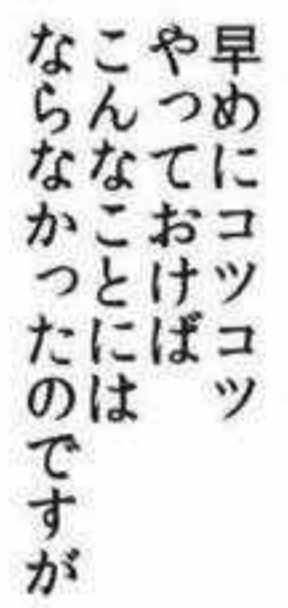 早めにコツコツ
やっておけば
こんなことには
ならなかったのですが